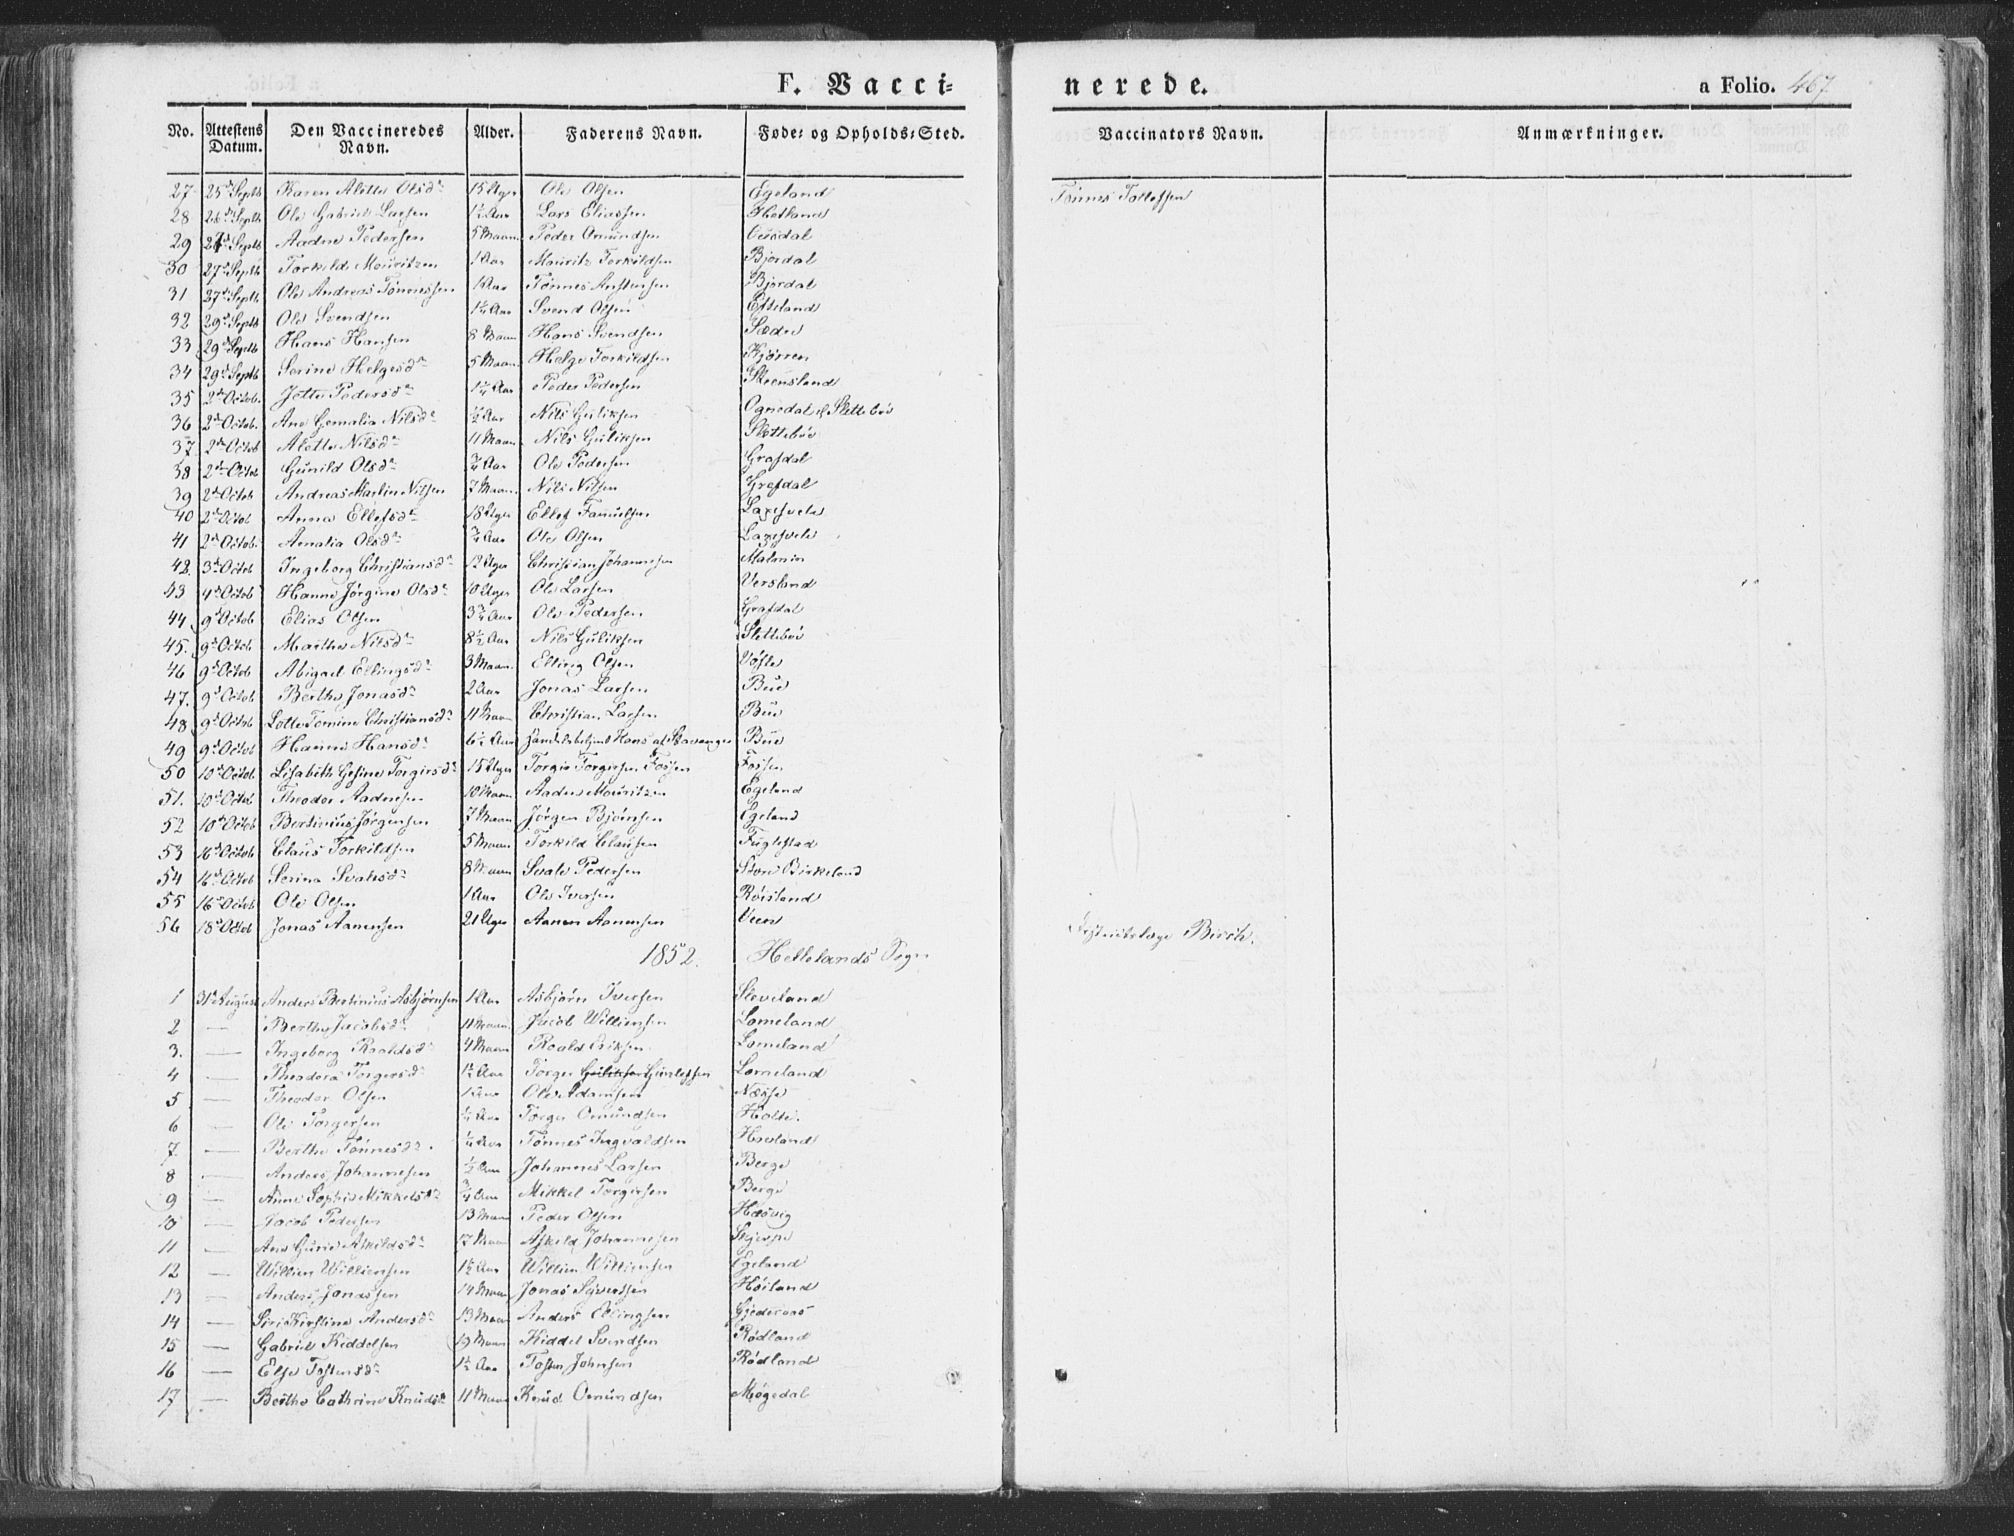 F. Vacci=
nerede.
a Folio. 467
No. Attestens Datum. Den Vaccineredes Navn. Alder. Faderens Navn. Føde= og Opholds=Sted. Vaccinators Navn. Anmærkninger.
27 25d Septb Karen Alette Olsdr 15 Uger Ole Olsen Egeland Tønnes Tollefsen
28 26d Septb Ole Gabriel Larsen 1½ Aar Lars Eliassen Hetland
29 Septb Aadne Pedersen 5 Maan Peder Omundsen
30 27d Septb Torkild Mouritzen 1 Aar Mouritz Torkildsen Bjordal
31 27d Septb Ole Andreas Tønnessen 1 Aar Tønnes Bjordal
32 29d Septb Ole Svendsen 1¼ Aar Svend Olsen Efteland
33 29d Septb Hans Hansen 8 Maan Hans Svendsen
34 29d Septb Serine Helgesdr 5 Maan Helge Torkildsen Kjørren
35 2d Octob. Jette Pedersdr 1¼ Aar Peder Pedersen Steensland
36 2d Octob. Ane Gemalia Nilsdr ½ Aar Nils Guliksen Ognedal & Slettebøe
37 2d Octob Alette Nilsdr 11 Maan Nils Guliksen Slettebøe
38 2d Octob Gunild Olsdr ¾ Aar Ole Pedersen Grafdal
39 2d Octob Andreas Martin Nilsen 7 Maan. Nils Nilsen Grafdal
40 2d Octob Anna Ellefsdr 18 Uger Ellef Samuelsen Laxesvele
41 2d Octob. Amalia Olsdr ¾ Aar Ole Olsen Laxesvele
42. 3d Octob Ingeborg Christiansdr 12 Uger Christian Johannesen Malmin
43 4d Octob Hanne Jørgine Olsdr 10 Uger Ole Larsen Versland
44 9d Octob Elias Olsen 3¾ Aar Ole Pedersen Grafdal
45. 9d Octob Marthe Nilsdr 8½ Aar Nils Guliksen Slettebøe
46 9d Octob Abigael Ellingsdr 3 Maan. Elling Olsen
47. 9d Octob Berthe Jonasdr 2 Aar Jonas Larsen Bue
48 9d Octob Lotte Tomine Christiansdr 11 Maan Christian Larsen Bue
49 9d Octob Hanne Hansdr 6½ Aar Hans af Stavanger Bue
50 10d Octob. Lisabeth Gesine Torgersdr 15 Uger Torger Torgersen Fossen Fossen
51. 10d Octob Theodor Aadnesen 10 Maan Aadne Mouritzen Egeland
52 10d Octob Bertinius Jørgensen 7 Maan Jørgen Bjørnsen Egeland
53 16d Octob Claus Torkildsen 5 Maan Torkild Clausen Fuglestad
54 16d Octob Serina Svalesdr 8 Maan Svale Pedersen Store Birkeland
55 16d Octob Ole Olsen 1 Aar Ole Iversen Røisland
56 18d Octob Jonas Aanensen 21 Uger Aanen Aanensen Veen Districtslæge Birch.
1852. Hellelands Sogn
1 31d August Anders Bertinius Asbjørnsen 1 Aar Asbjørn Iversen Sleveland
2 — Berthe Jacobsdr 11 Maan. Jacob Williensen Lomeland
3. — Ingeborg Roaldsdr 4 Maan Roald Eriksen Lomeland
4 — Theodora Torgersdr 1½ Aar Torger Guliksen Gunlefsen Lomeland
5 — Theodor Olsen 1 Aar Ole Adamsen Næsse
6 — Ole Torgersen ¼ Aar Torger Omundsen Holte.
7 — Berthe Tønnesdr. ¼ Aar Tønnes Ingvaldsen Hovland
8 — Anders Johannesen ½ Aar Johannes Larsen Berge
9 — Anne Sophie Mikkelsdr ¾ Aar Mikkel Torgersen Berge
10 — Jacob Pedersen 13 Maan Peder Olsen Hæsvig
11 — Ane Gurie Askildsdr 17 Maan Askild Johannesen Skjerpe
12 — Willien Williensen 1½ Aar Willien Williensen Egeland
13 — Anders Jonassen 14 Maan Jonas Sivertsen Høiland
14 — Siri Kirstine Andersdr 13 Maan Anders Ellingsen Gjederaas
15 — Gabriel Kiddelsen 19 Maan Kiddel Svendsen Rødland
16 — Else Tostensdr 1½ Aar Tosten Johnsen Rødland
17 — Berthe Cathrine Knudsdr 11 Maan Knud Omundsen Møgedal